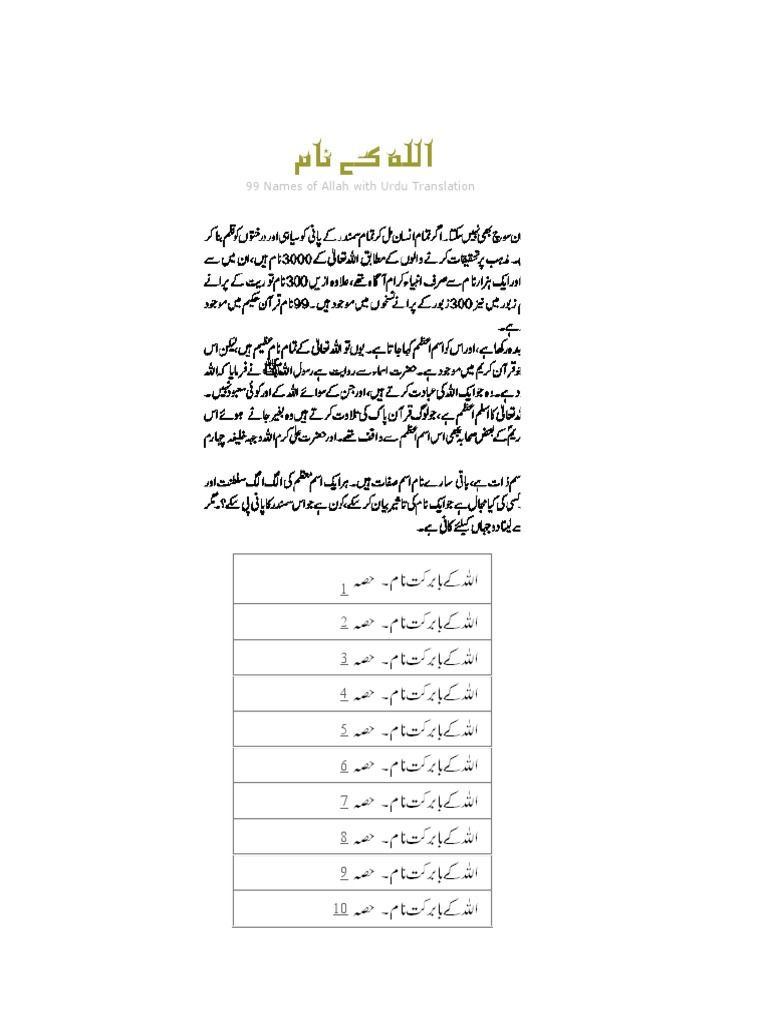 الله کے نام
99 Names of Allah with Urdu Translation
ن سوچ بھی نہیں سکتا۔ اگر تمام انسان مل کر تمام سمندر کے پانی کو سیاہی اور درختوں کو قلم بنا کر
مذہب پر تحقیقات کرنے والوں کے مطابق اللہ تعالیٰ کے 3000 نام ہیں، ان میں سے
اور ایک ہزار نام سے صرف انبیاء کرام آگاہ تھے، علاوہ ازیں 300 نام توریت کے پرانے
زبور میں نیز 300 زبور کے پرانے نسخوں میں موجود ہیں۔ 99 نام قرآن حکیم میں موجود
ہے۔
رکھا ہے، اور اس کو اسم اعظم کہا جاتا ہے۔ یوں تو اللہ تعالیٰ کے تمام نام عظیم ہیں، لیکن اس
قرآن کریم میں موجود ہے۔ حضرت اسماء سے روایت ہے رسول اللہ ﷺ نے فرمایا کہ اللہ
ہے۔ وہ جو ایک اللہ کی عبادت کرتے ہیں، اور جن کے سوائے اللہ کے اور کوئی معبود نہیں۔
تعالیٰ کا اسم اعظم ہے، جو لوگ قرآن پاک کی تلاوت کرتے ہیں وہ بغیر جانے ہوئے اس
کے بعض صحابہ بھی اس اسم اعظم سے واقف تھے۔ اور حضرت علی کرم اللہ وجہہ خلیفہ چہارم
سم ذات ہے، باقی سارے نام اسم صفات ہیں۔ ہر ایک اسم معظم کی الگ الگ سلطنت اور
کسی کی کیا مجال ہے جو ایک نام کی تاثیر بیان کر سکے، کون ہے جو اس سمندر کا پانی پی سکے؟۔ مگر
سے لینا دو جہاں کیلئے کافی ہے۔
اللہ کے بابرکت نام۔ حصہ 1
اللہ کے بابرکت نام۔ حصہ 2
اللہ کے بابرکت نام۔ حصہ 3
اللہ کے بابرکت نام۔ حصہ 4
اللہ کے بابرکت نام۔ حصہ 5
اللہ کے بابرکت نام۔ حصہ 6
اللہ کے بابرکت نام۔ حصہ 7
اللہ کے بابرکت نام۔ حصہ 8
اللہ کے بابرکت نام۔ حصہ 9
اللہ کے بابرکت نام۔ حصہ 10